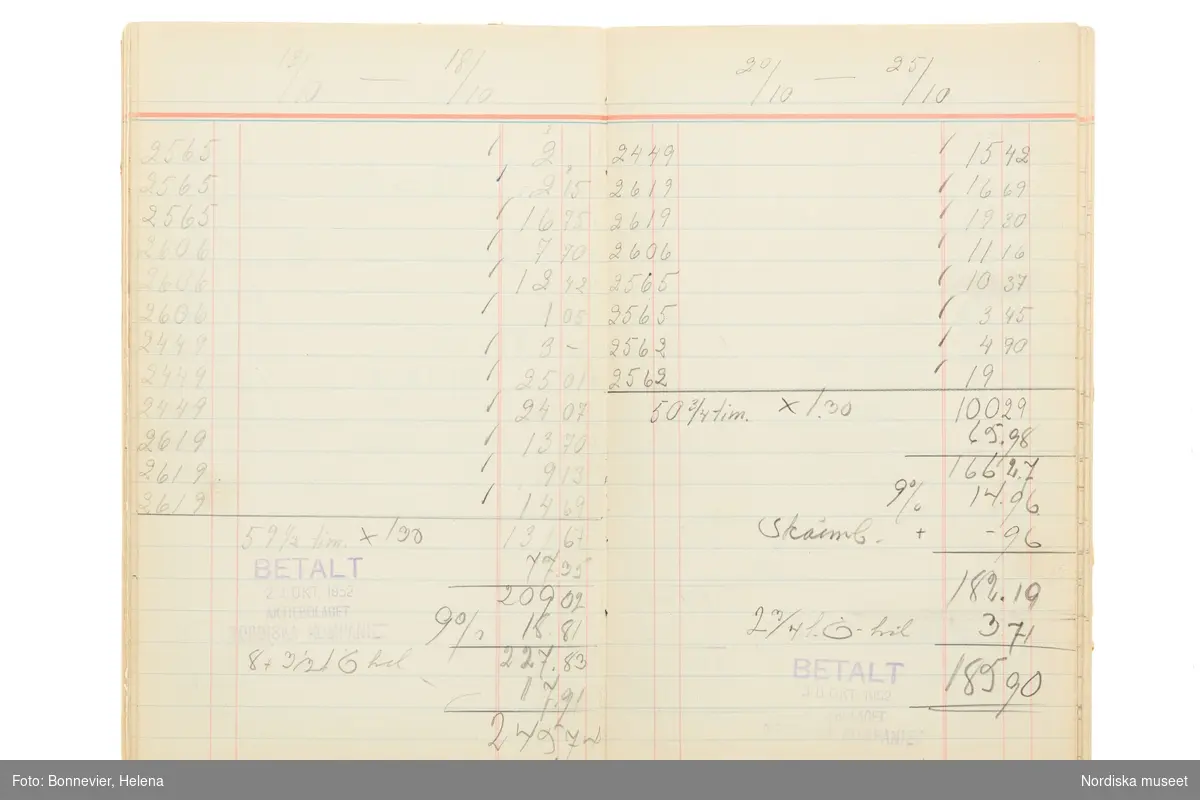 13/10 — 18/10
2565 2,
2565 2 15
2565 16 75
2606 7 70
2606 12 42
2606 1 05
2449 3 –
2449 25 01
2449 24 07
2619 13 70
2619 9 13
2619 14 69
59 1/2 tim. × 1.30 131 67
77.35
209 02
9% 18.81
227.83
17.91
245.74
BETALT
OKT 1952
AKTIEBOLAGET
20/10 — 25/10
2449 15 42
2619 16 69
2619 19 30
2606 11 16
2565 10 37
2565 3 45
2562 4 90
2562 19
50 3/4 tim. × 1.30 100 29
65.98
166 27
9% 14.96
+ – 96
182.19
2 3/4 3 71
185 90
BETALT
OKT 1952
Foto: Bonnevier, Helena
Nordiska museet